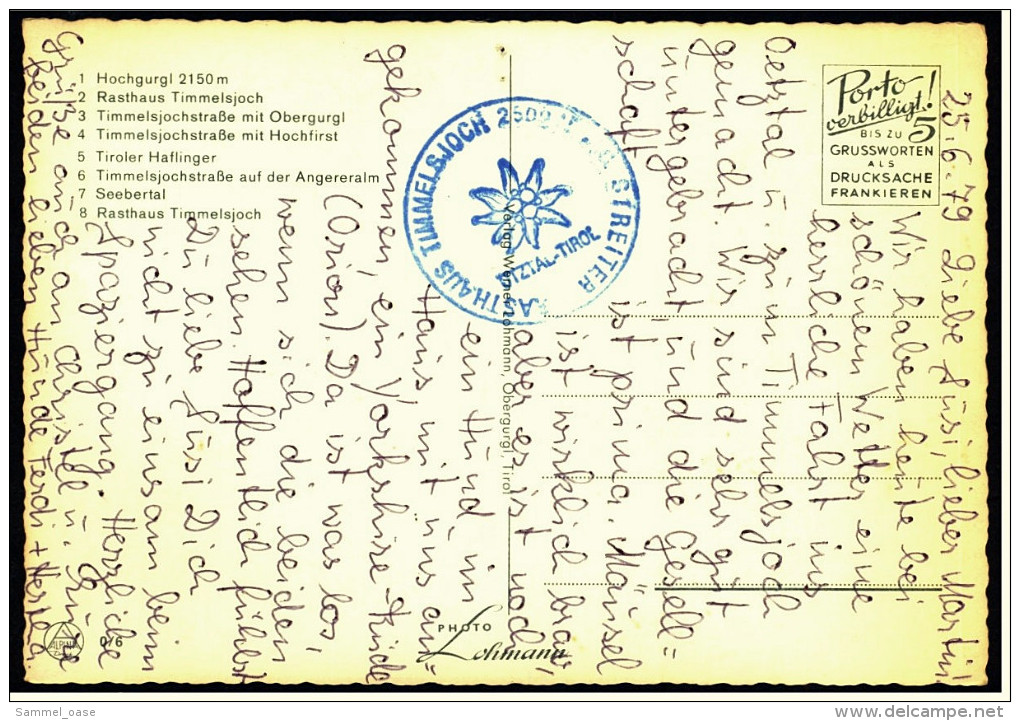 1 Hochgurgl 2150 m
2 Rasthaus Timmelsjoch
3 Timmelsjochstraße mit Obergurgl
4 Timmelsjochstraße mit Hochfirst
5 Tiroler Haflinger
6 Timmelsjochstraße auf der Angereralm
7 Seebertal
8 Rasthaus Timmelsjoch
Porto
verbilligt!
BIS ZU 5
GRUSSWORTEN
ALS
DRUCKSACHE
FRANKIEREN
RASTHAUS TIMMELSJOCH 2500 STREITER
ÖTZTAL-TIROL
Verlag Werner Lohmann, Obergurgl, Tirol
PHOTO
Lohmann
ALPINA
0/6
25.6.79 Liebe Lüsi, lieber Martin
Wir haben heute bei
schönem Wetter eine
herrliche Fahrt ins
Oetztal u. zum Timmelsjoch
gemacht. Wir sind sehr gut
untergebracht und die Gesell=
schaft ist prima. Mäusel
ist wirklich brav,
aber es ist noch
ein Hund im
Haus mit uns an=
gekommen, ein Yorkshire-Rüde
(Orion). Da ist was los,
wenn sich die beiden
sehen. Hoffentlich fühlst
Du liebe Lüsi Dich
nicht zu einsam beim
Spaziergang. Herzliche
Grüße auch an Christel u.
beiden lieben Hunde Ferdi + Herta
Sammel_oase